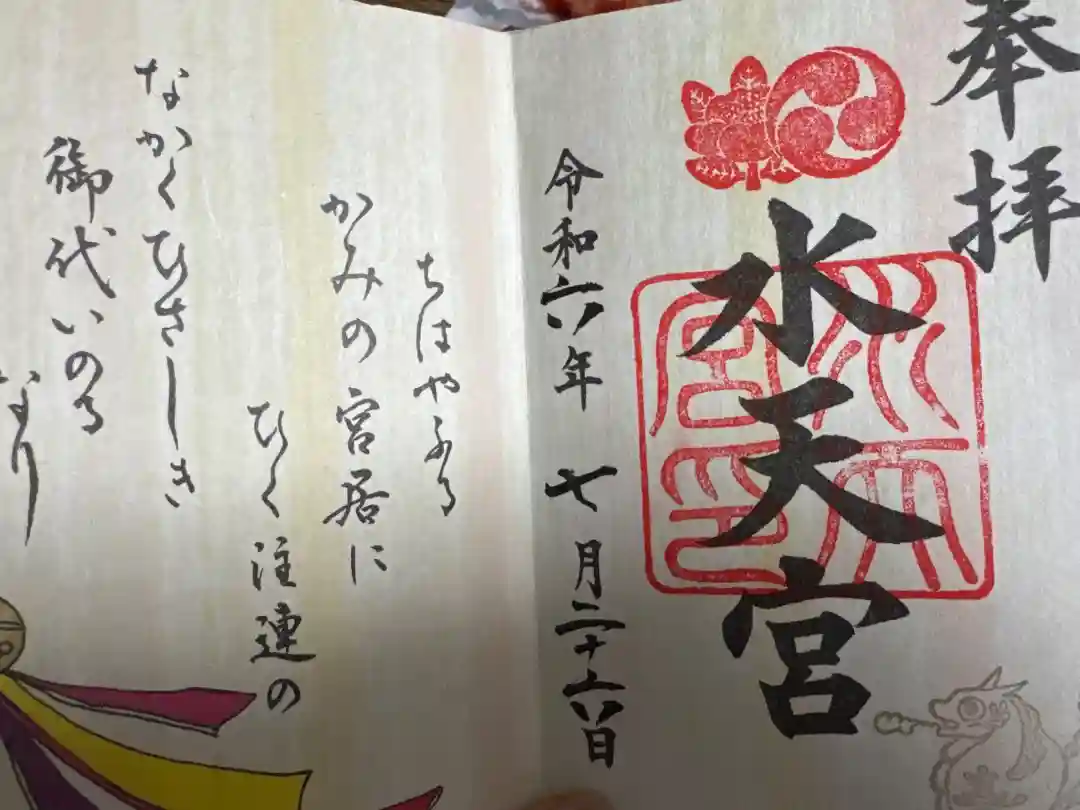 奉拝
水天宮
令和六年 七月二十六日
ちはやふる
かみの宮居に
ひく注連の
なかくひさしき
御代いのる
なり